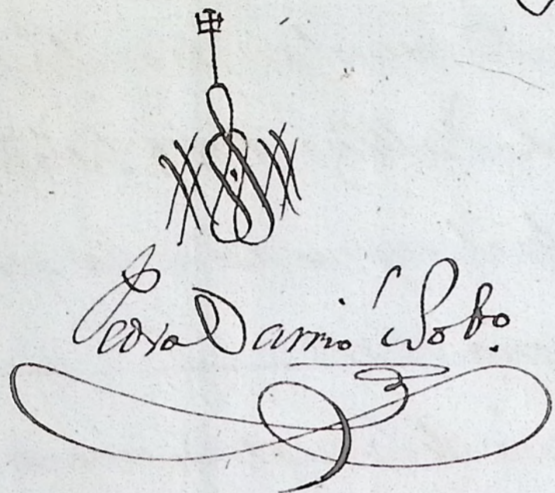 Pedro Damió Lobo.